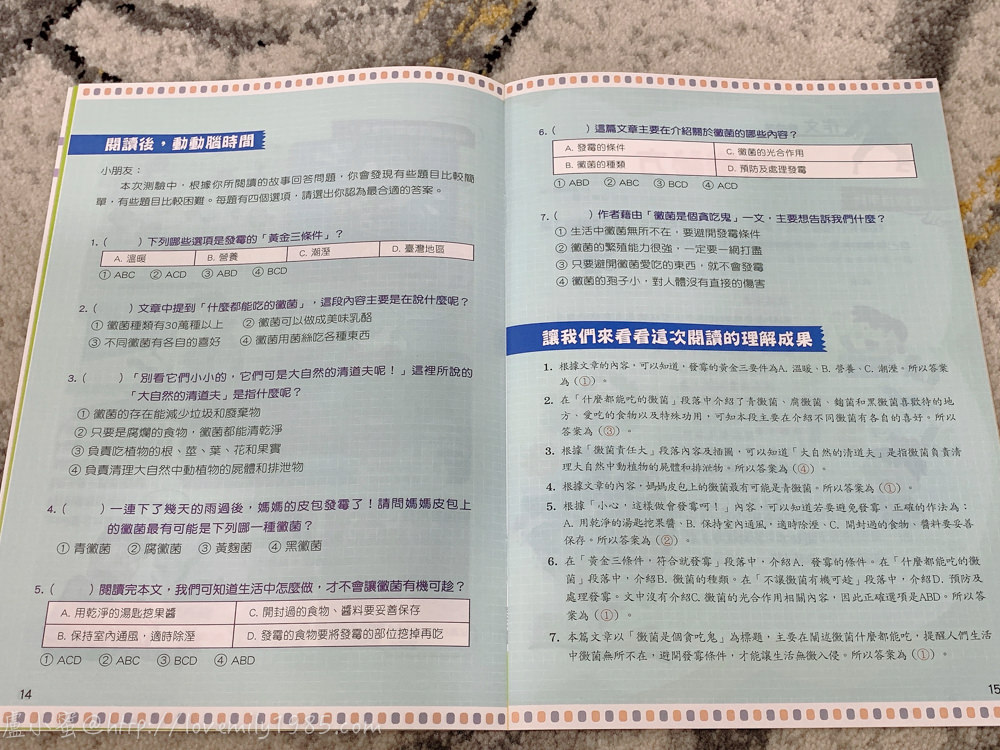 閱讀後，動動腦時間
小朋友：
本次測驗中，根據你所閱讀的故事回答問題，你會發現有些題目比較簡
單，有些題目比較困難。每題有四個選項，請選出你認為最合適的答案。
1. (　　) 下列哪些選項是發霉的「黃金三條件」？
A. 溫暖　B. 營養　C. 潮溼　D. 臺灣地區
① ABC　② ACD　③ ABD　④ BCD
2. (　　) 文章中提到「什麼都能吃的黴菌」，這段內容主要是在說什麼呢？
① 黴菌種類有30萬種以上　② 黴菌可以做成美味乳酪
③ 不同黴菌有各自的喜好　④ 黴菌用菌絲吃各種東西
3. (　　) 「別看它們小小的，它們可是大自然的清道夫呢！」這裡所說的
「大自然的清道夫」是指什麼呢？
① 黴菌的存在能減少垃圾和廢棄物
② 只要是腐爛的食物，黴菌都能清乾淨
③ 負責吃植物的根、莖、葉、花和果實
④ 負責清理大自然中動植物的屍體和排泄物
4. (　　) 一連下了幾天的雨過後，媽媽的皮包發霉了！請問媽媽皮包上
的黴菌最有可能是下列哪一種黴菌？
① 青黴菌　② 腐黴菌　③ 黃麴菌　④ 黑黴菌
5. (　　) 閱讀完本文，我們可知道生活中怎麼做，才不會讓黴菌有機可趁？
A. 用乾淨的湯匙挖果醬　C. 開封過的食物、醬料要妥善保存
B. 保持室內通風，適時除溼　D. 發霉的食物要將發霉的部位挖掉再吃
① ACD　② ABC　③ BCD　④ ABD
14
6. (　　) 這篇文章主要在介紹關於黴菌的哪些內容？
A. 發霉的條件　C. 黴菌的光合作用
B. 黴菌的種類　D. 預防及處理發霉
① ABD　② ABC　③ BCD　④ ACD
7. (　　) 作者藉由「黴菌是個貪吃鬼」一文，主要想告訴我們什麼？
① 生活中黴菌無所不在，要避開發霉條件
② 黴菌的繁殖能力很強，一定要一網打盡
③ 只要避開黴菌愛吃的東西，就不會發霉
④ 黴菌的孢子小，對人體沒有直接的傷害
讓我們來看看這次閱讀的理解成果
1. 根據文章的內容，可以知道，發霉的黃金三要件為A. 溫暖、B. 營養、C. 潮溼。所以答案
為（①）。
2. 在「什麼都能吃的黴菌」段落中介紹了青黴菌、腐黴菌、麴菌和黑黴菌喜歡待的地
方、愛吃的食物以及特殊功用，可知本段主要在介紹不同黴菌有各自的喜好。所以
答案為（③）。
3. 根據「黴菌責任大」段落內容及插圖，可以知道「大自然的清道夫」是指黴菌負責清
理大自然中動植物的屍體和排泄物。所以答案為（④）。
4. 根據文章的內容，媽媽皮包上的黴菌最有可能是青黴菌。所以答案為（①）。
5. 根據「小心，這樣做會發霉啊！」內容，可以知道若要避免發霉，正確的作法為：
A. 用乾淨的湯匙挖果醬、B. 保持室內通風，適時除溼、C. 開封過的食物、醬料要妥善
保存。所以答案為（②）。
6. 在「黃金三條件，符合就發霉」段落中，介紹A. 發霉的條件。在「什麼都能吃的黴
菌」段落中，介紹B. 黴菌的種類。在「不讓黴菌有機可趁」段落中，介紹D. 預防及
處理發霉。文中沒有介紹C. 黴菌的光合作用相關內容，因此正確選項是ABD。所以答
案為（①）。
7. 本篇文章以「黴菌是個貪吃鬼」為標題，主要在闡述黴菌什麼都能吃，提醒人們生活
中黴菌無所不在，避開發霉條件，才能讓生活無黴入侵。所以答案為（①）。
15
盧小蜜@http://lovemily1985.com/